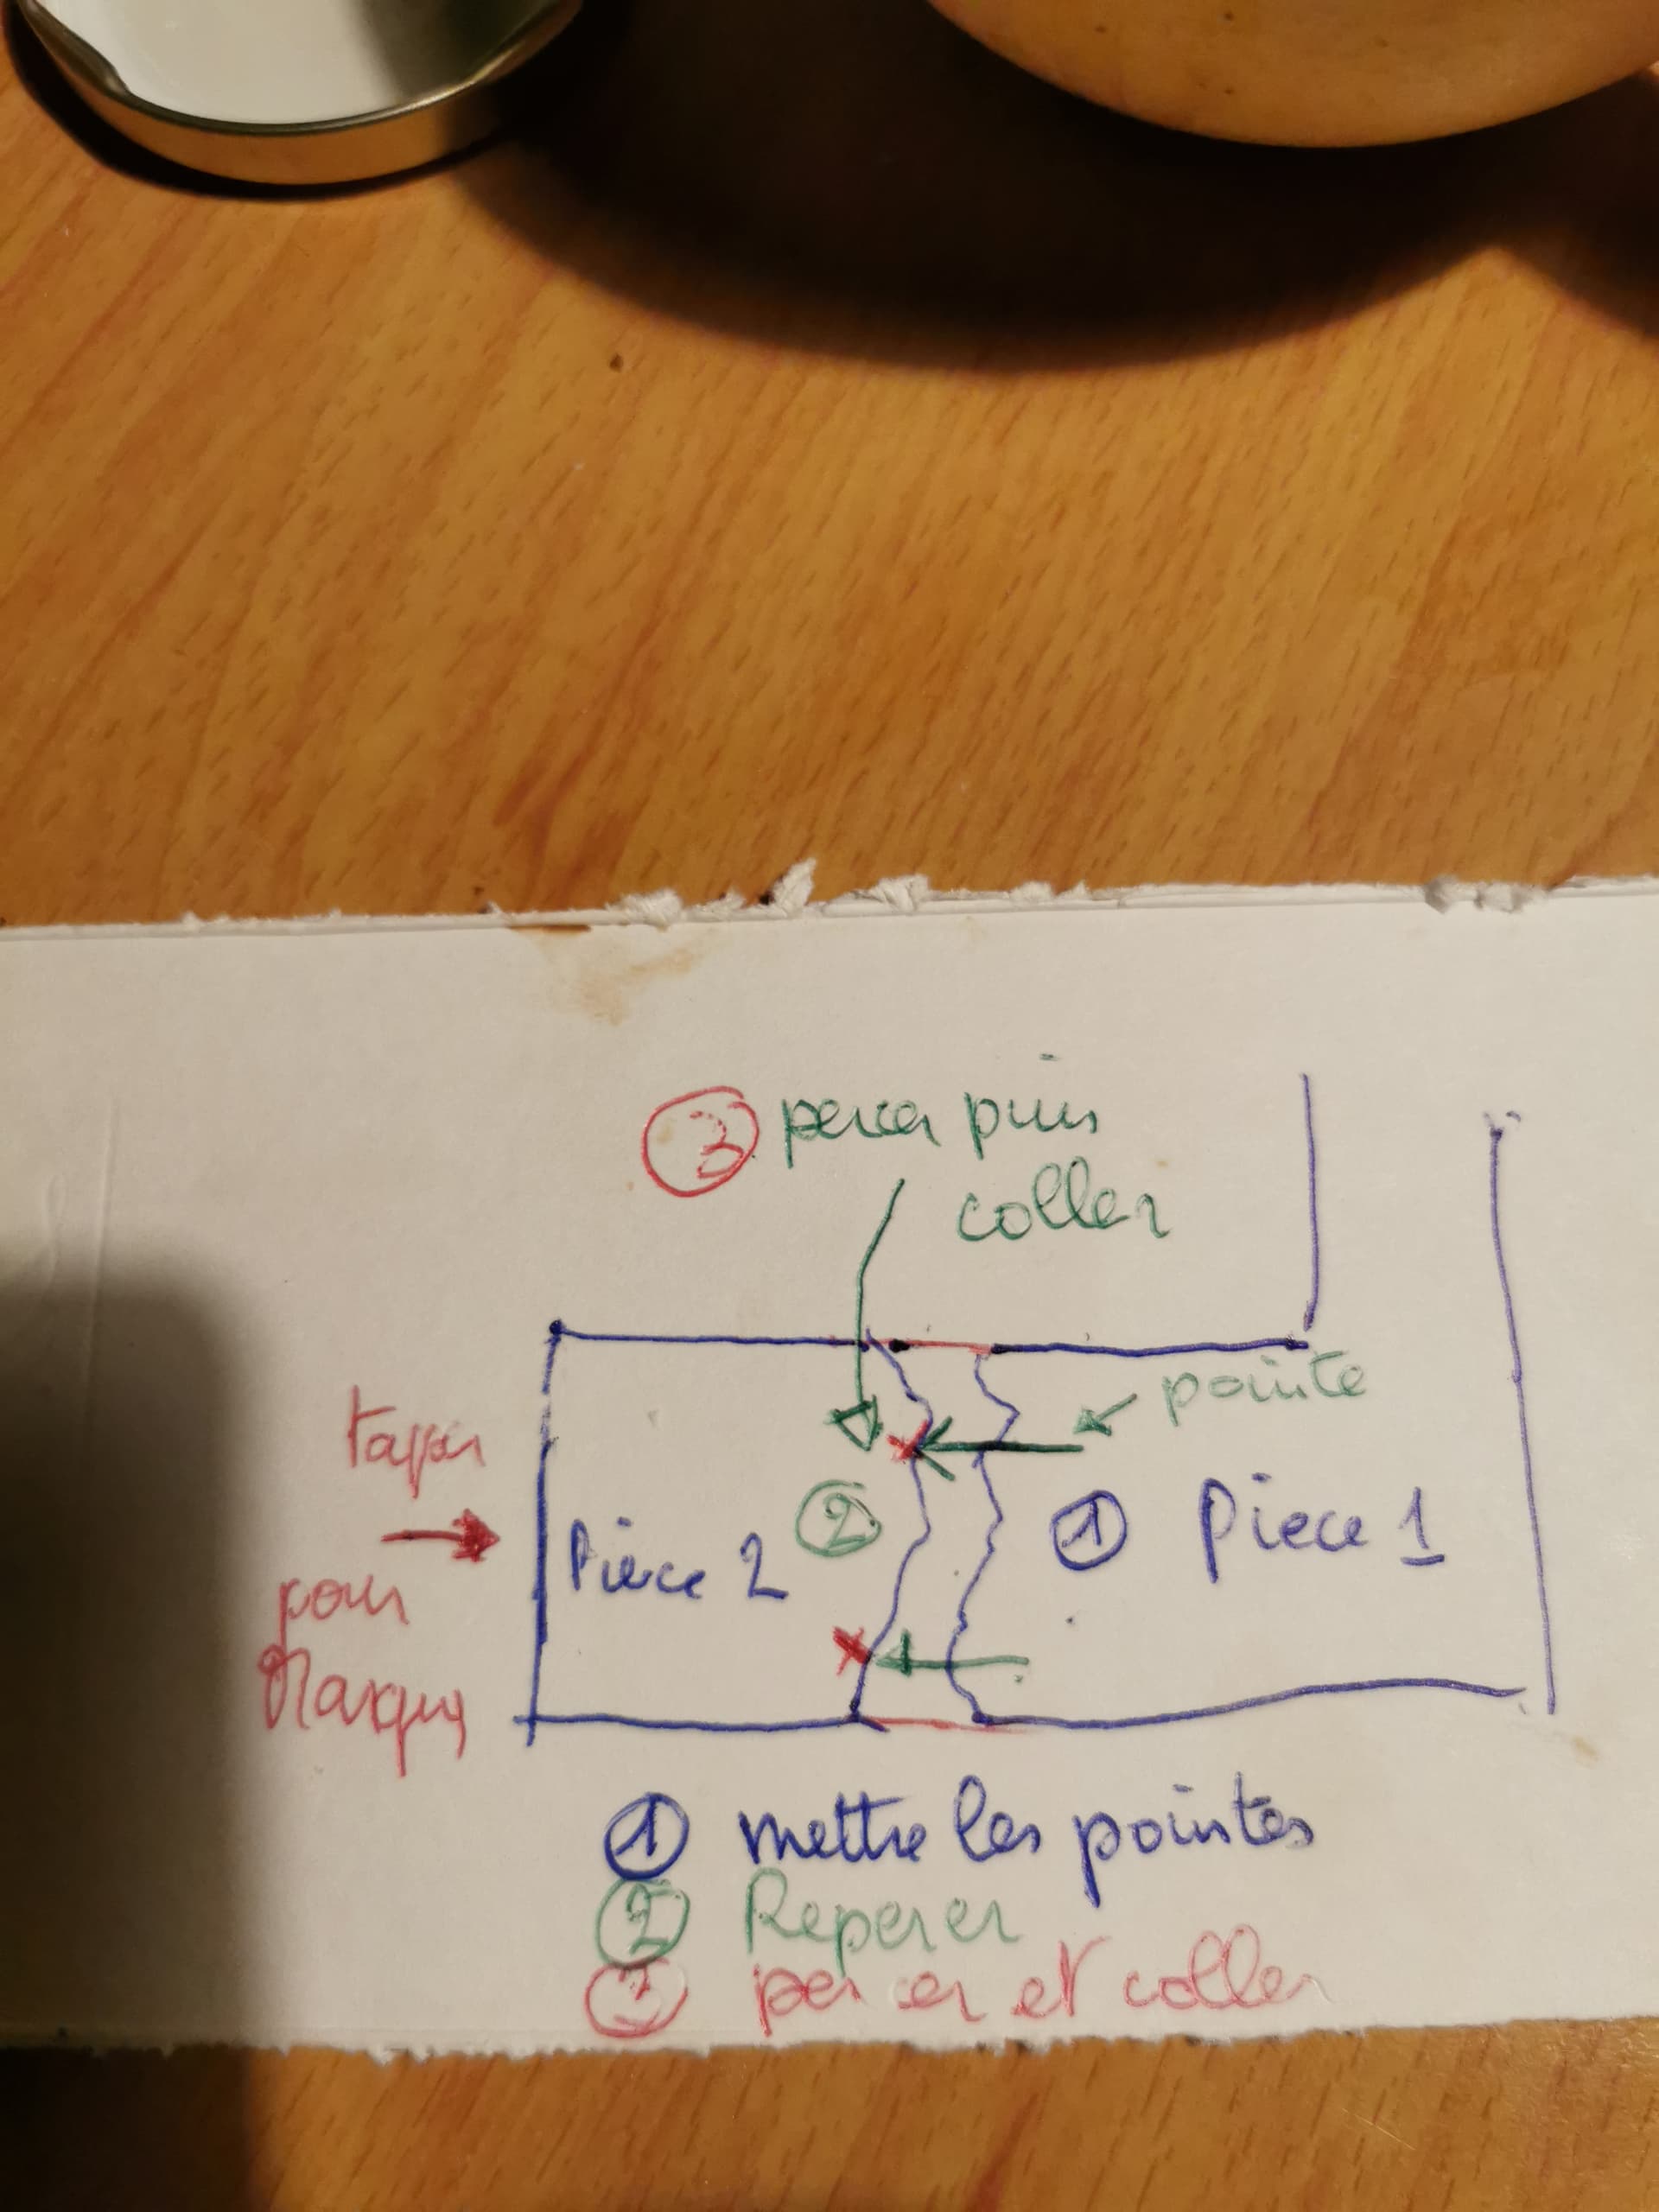 ③ percer puis
coller
pointe
taper
pour
Marquer
Pièce 2
②
① Pièce 1
① mettre les pointes
② Reperer
③ percer et coller